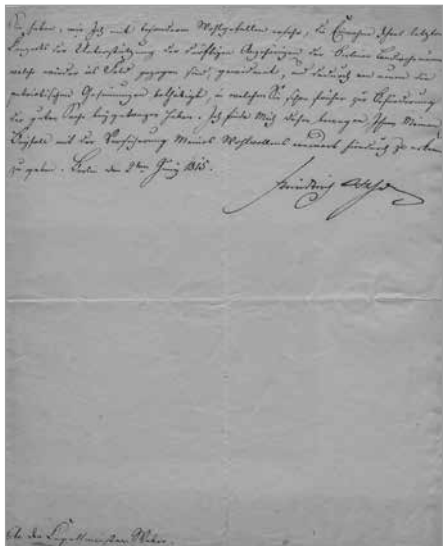 Sie haben, wie Ich mit besonderm Wohlgefallen ersehe, die Einnahme Ihres letzten
Concerts der Unterstützung der dürftigen Angehörigen der Berliner
welche wieder ins Feld gezogen sind, gewidmet, und dadurch von neuem die
patriotischen Gesinnungen bethätigt, in welchen Sie schon früher zur Beförderung
der guten Sache beygetragen haben. Ich finde Mich daher bewogen, Ihnen Meinen
Beyfall mit der Versicherung Meines Wohlwollens hierdurch zu erkennen
zu geben. Berlin den 2ten Juny 1815.
Friedrich Wilhelm
An den Capellmeister Weber.